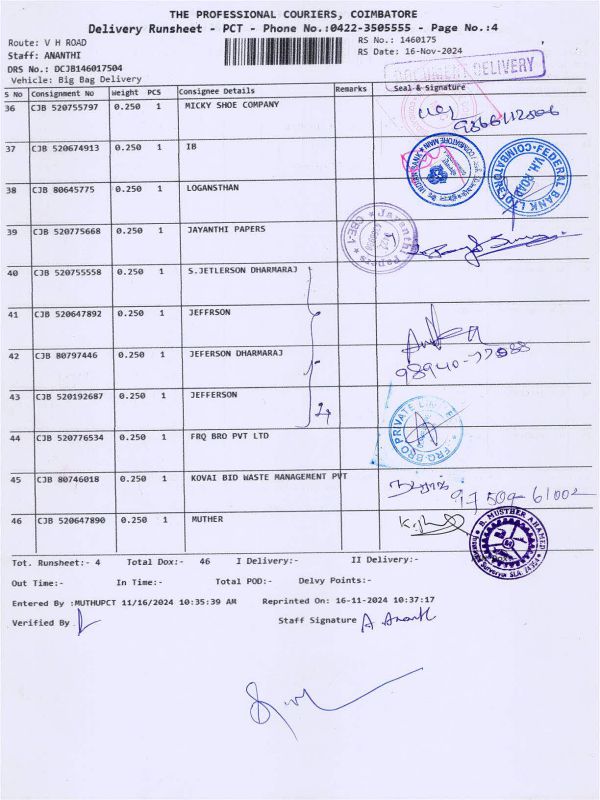 THE PROFESSIONAL COURIERS, COIMBATORE
Delivery Runsheet - PCT - Phone No.:0422-3505555 - Page No.:4
Route: V H ROAD RS No.: 1460175
Staff: ANANTHI RS Date: 16-Nov-2024
DRS No.: DCJB146017504
Vehicle: Big Bag Delivery
DOCUMENT DELIVERY
S No Consignment No Weight PCS Consignee Details Remarks Seal & Signature
36 CJB 520755797 0.250 1 MICKY SHOE COMPANY
37 CJB 520674913 0.250 1 IB
FEDERAL BANK LTD COIMBATORE V.H. ROAD
38 CJB 80645775 0.250 1 LOGANSTHAN
39 CJB 520775668 0.250 1 JAYANTHI PAPERS
Jayanthi Papers CBE-1
40 CJB 520755558 0.250 1 S.JETLERSON DHARMARAJ
41 CJB 520647892 0.250 1 JEFFRSON
42 CJB 80797446 0.250 1 JEFERSON DHARMARAJ
98940-77088
43 CJB 520192687 0.250 1 JEFFERSON
44 CJB 520776534 0.250 1 FRQ BRO PVT LTD
FRQ-BRO PRIVATE LIMITED
45 CJB 80746018 0.250 1 KOVAI BID WASTE MANAGEMENT PVT
97509-61002
46 CJB 520647890 0.250 1 MUTHER
B. MUSTHER AHAMED
Tot. Runsheet:- 4 Total Dox:- 46 I Delivery:- II Delivery:-
Out Time:- In Time:- Total POD:- Delvy Points:-
Entered By :MUTHUPCT 11/16/2024 10:35:39 AM Reprinted On: 16-11-2024 10:37:17
Verified By Staff Signature A Ananth